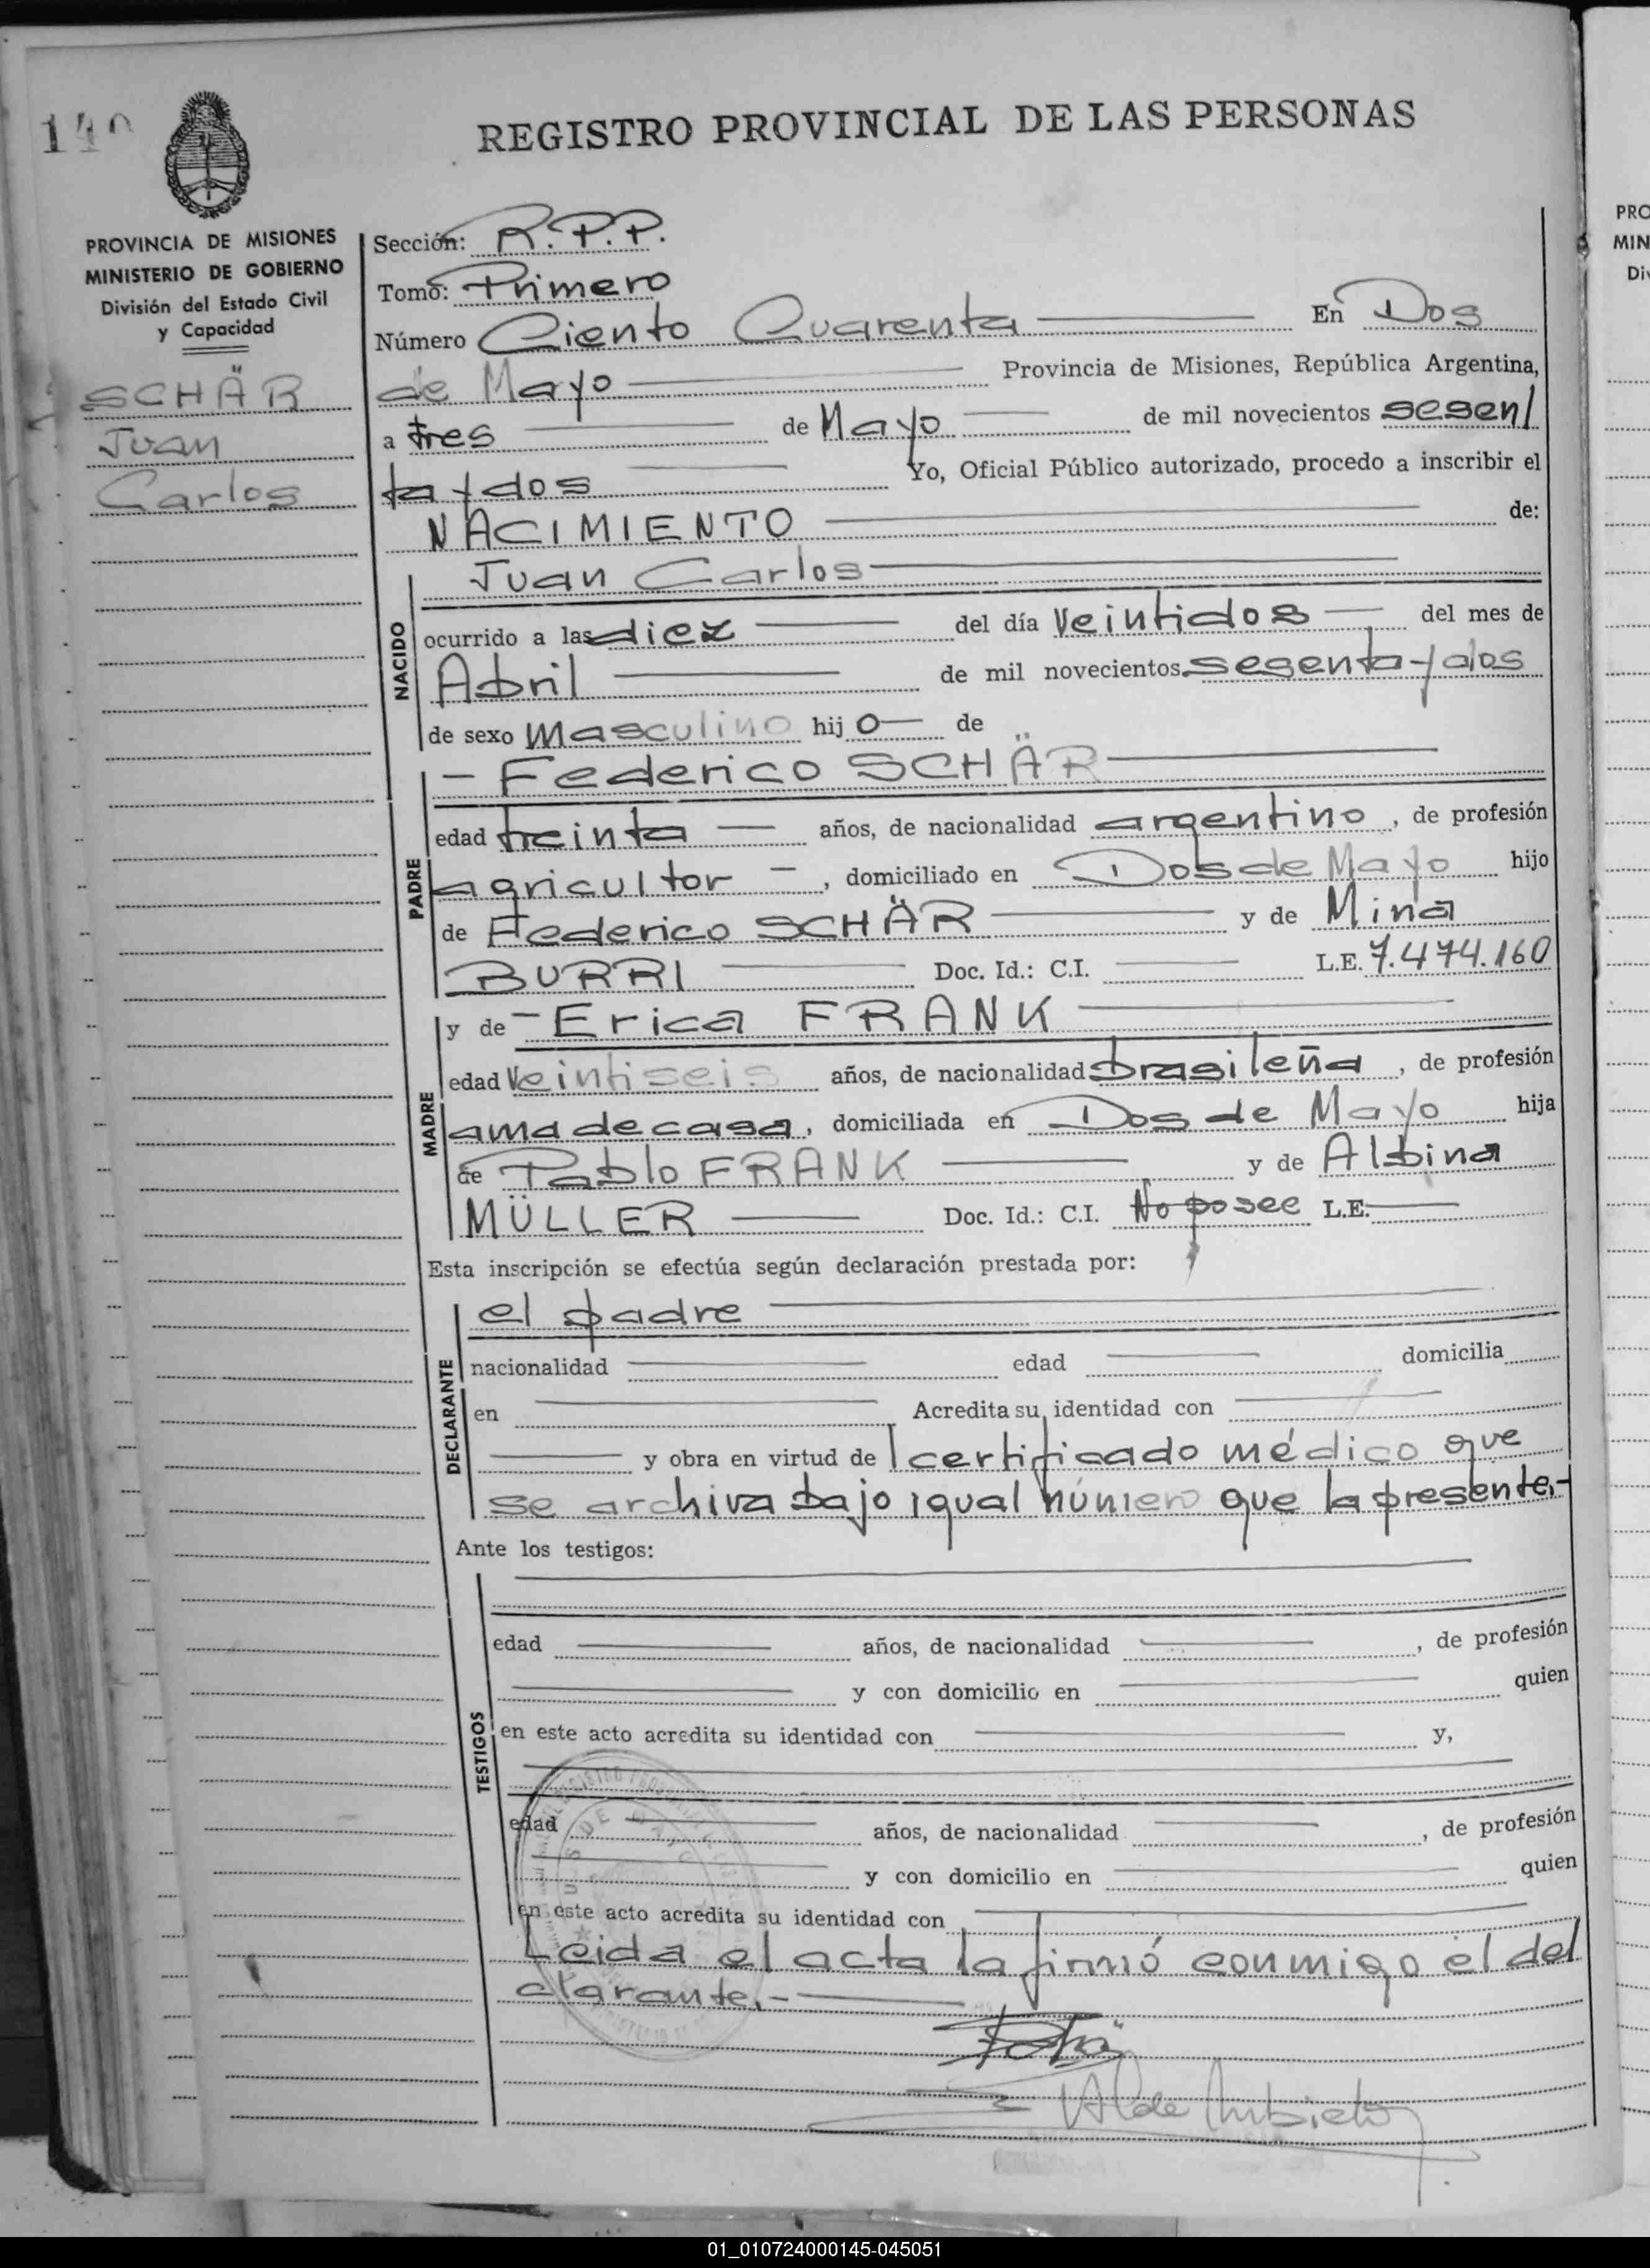 140
REGISTRO PROVINCIAL DE LAS PERSONAS
PROVINCIA DE MISIONES
MINISTERIO DE GOBIERNO
División del Estado Civil
y Capacidad
SCHÄR
Juan
Carlos
Sección: R.P.P.
Tomo: Primero
Número Ciento Cuarenta En Dos
de Mayo Provincia de Misiones, República Argentina,
a tres de Mayo de mil novecientos sesen/
ta y dos Yo, Oficial Público autorizado, procedo a inscribir el
NACIMIENTO de:
NACIDO
Juan Carlos
ocurrido a las diez del día veintidos del mes de
Abril de mil novecientos sesenta y dos
de sexo masculino hijo de
PADRE
- Federico SCHÄR
edad treinta años, de nacionalidad argentino, de profesión
agricultor -, domiciliado en Dos de Mayo hijo
de Federico SCHÄR y de Mina
BURRI Doc. Id.: C.I. L.E. 7.474.160
MADRE
y de - Erica FRANK
edad veintiseis años, de nacionalidad brasileña, de profesión
ama de casa, domiciliada en Dos de Mayo hija
de Pablo FRANK y de Albina
MÜLLER Doc. Id.: C.I. No posee L.E.
Esta inscripción se efectúa según declaración prestada por:
DECLARANTE
el padre
nacionalidad edad domicilia
en Acredita su identidad con
y obra en virtud de l certificado médico que
se archiva bajo igual número que la presente.-
Ante los testigos:
TESTIGOS
edad años, de nacionalidad , de profesión
y con domicilio en quien
en este acto acredita su identidad con y,
edad años, de nacionalidad , de profesión
y con domicilio en quien
en este acto acredita su identidad con
Leida el acta la firmó conmigo el de/
clarante.-
PRO
MIN
Di
01_010724000145-045051